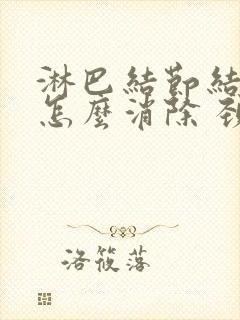 淋巴結節結
怎麼消除 頸
洛筱落